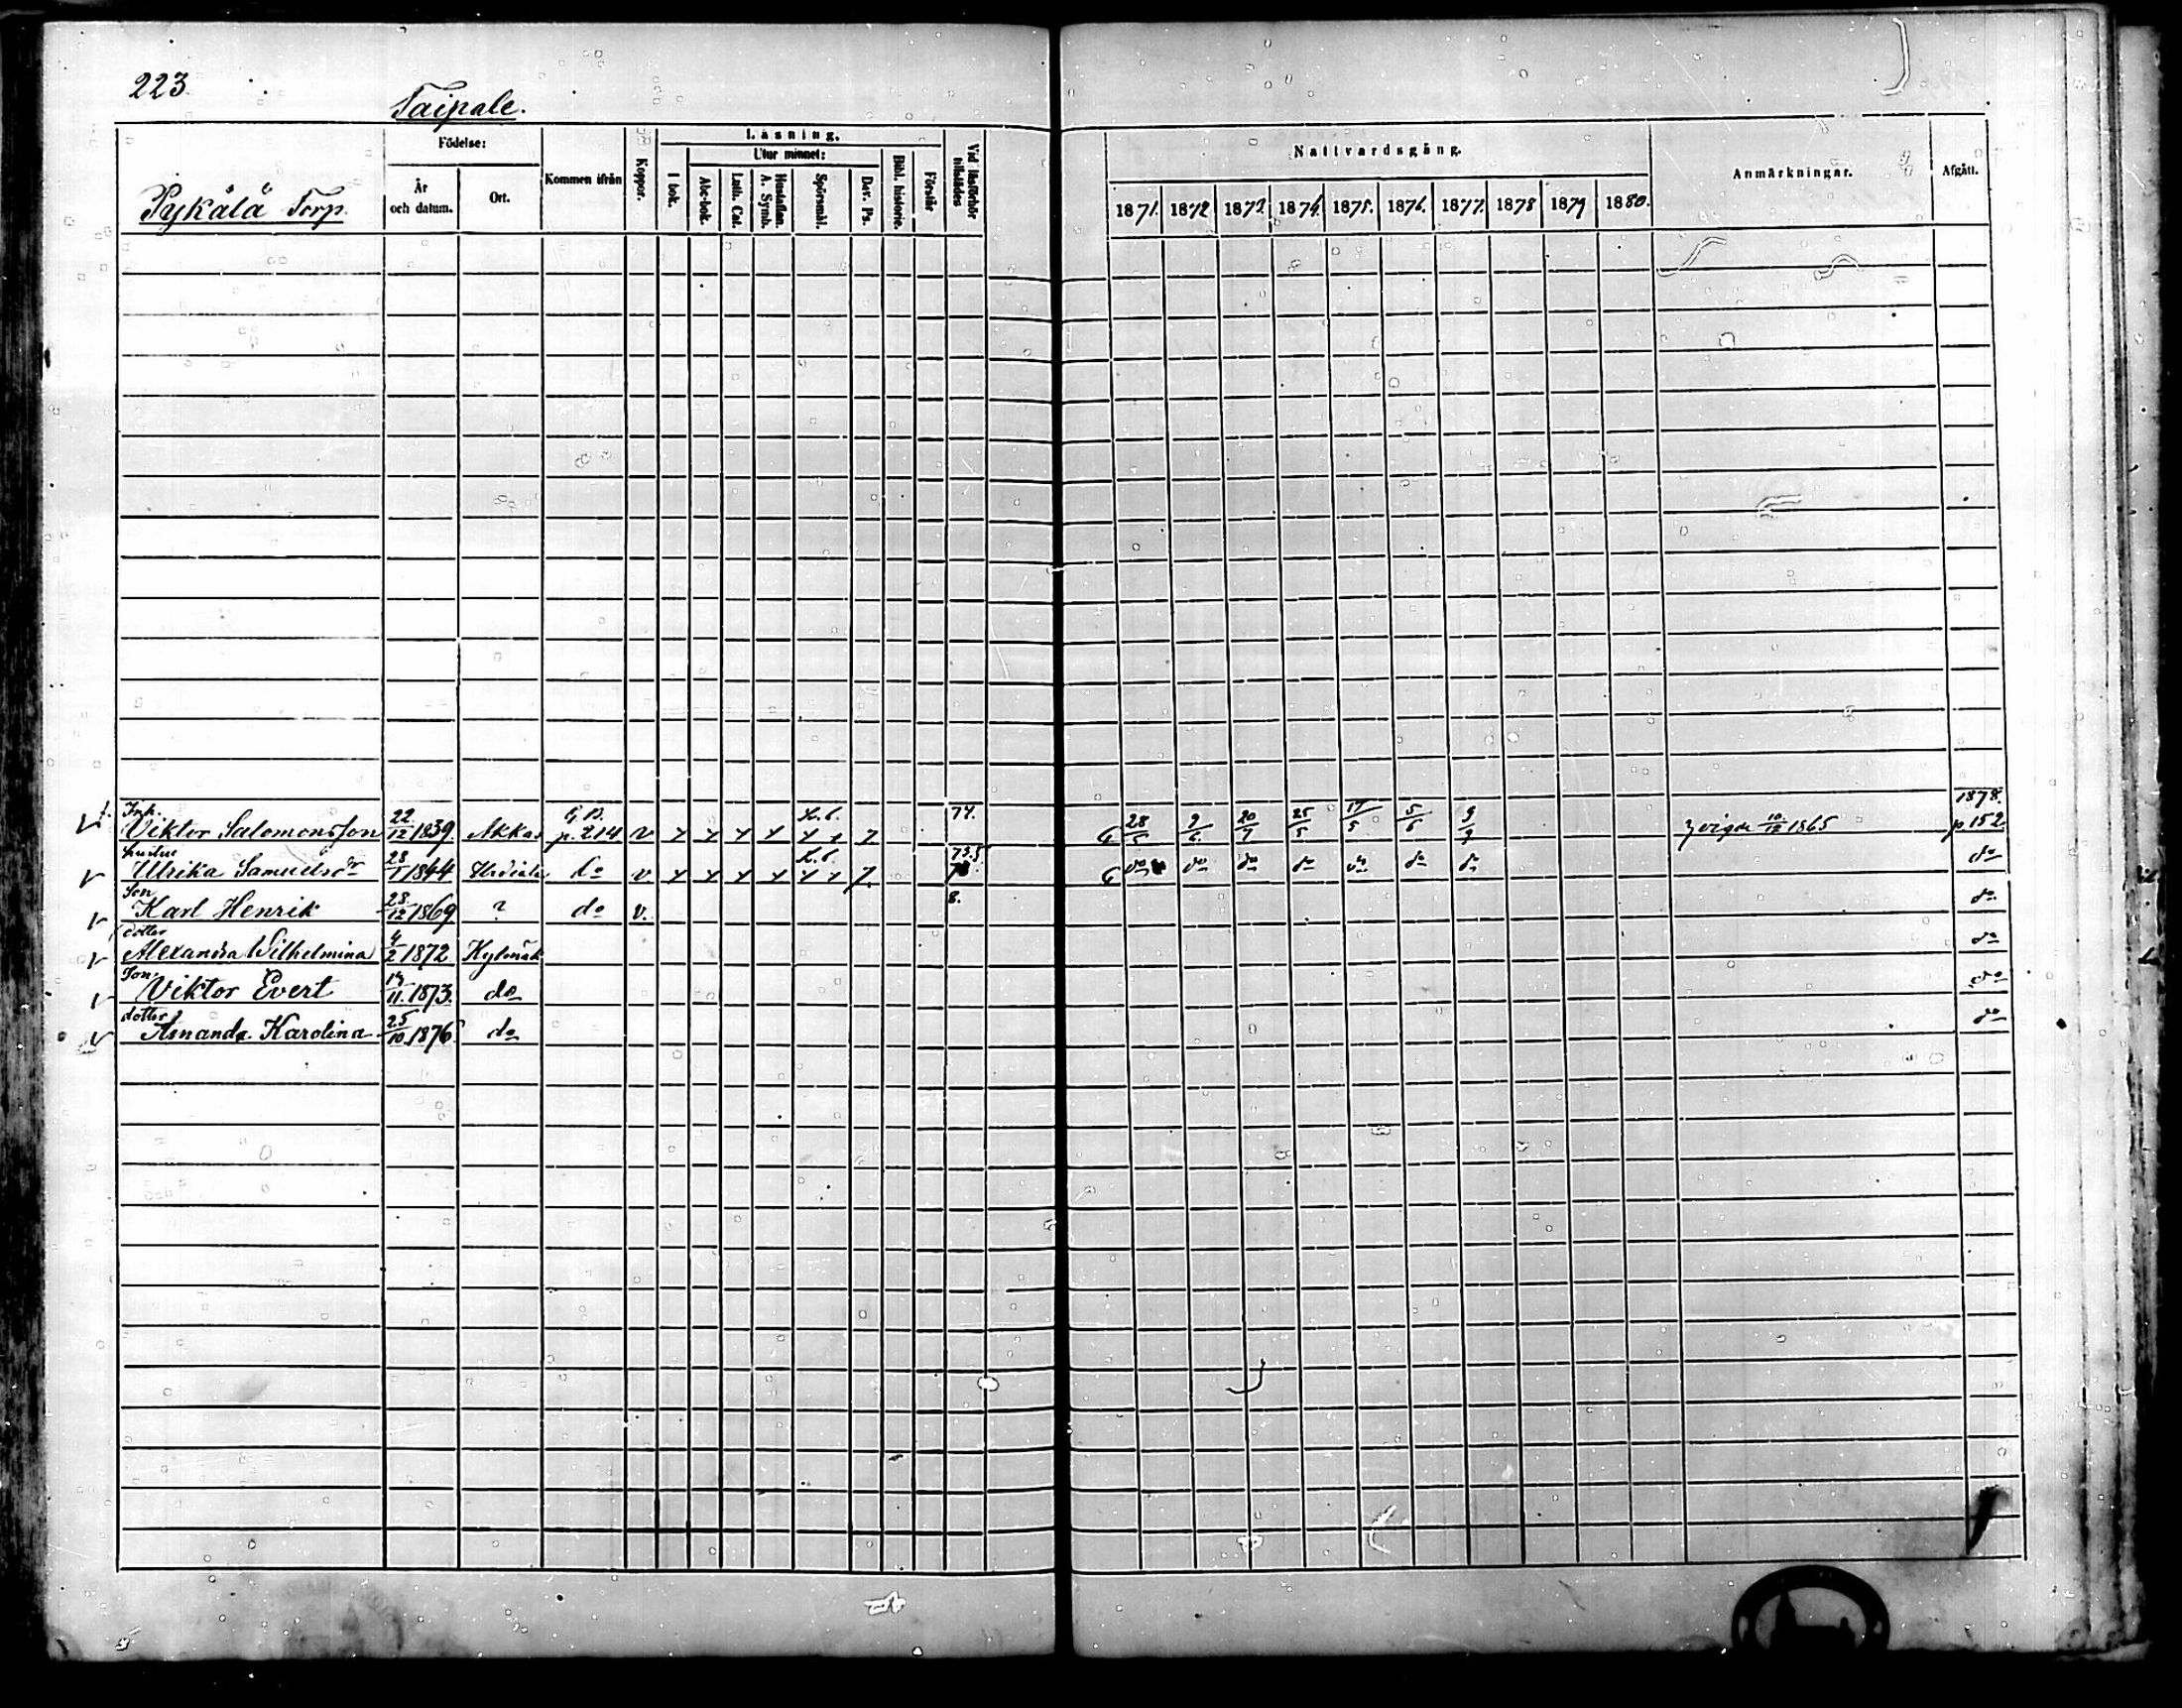 223.
Taipale.
Pykälä Torp.
Födelse:
År och datum.
Ort.
Kommen ifrån
Koppor.
Läsning.
I bok.
Utur minnet:
Abc-bok.
Luth. Cat.
Hustaflan. A. Symb.
Spörsmål.
Dav. Ps.
Bibl. historie.
Förstår
Vid läsförhör tillstädes
Nattvardsgång.
1871. 1872 1873. 1874. 1875. 1876. 1877. 1878 1879 1880.
Anmärkningar.
Afgått.
Viktor Salomonsson 22/12 1839. Akkas G.B. p. 214 v 77. 28/5 9/6 20/7 25/5 17/5 5/6 9/9 vigde 10/12 1865 1878. p 152
hustru Ulrika Samuelsdr 28/1 1844 Urdiala do v 73.5 do do do do do do do do
Son Karl Henrik 28/12 1869 ? do v. 8. do
dotter Alexandra Wilhelmina 4/2 1872 Kylmäk do
Son Viktor Evert 14/11 1873. do do
dotter Amanda Karolina 25/10 1876 do do